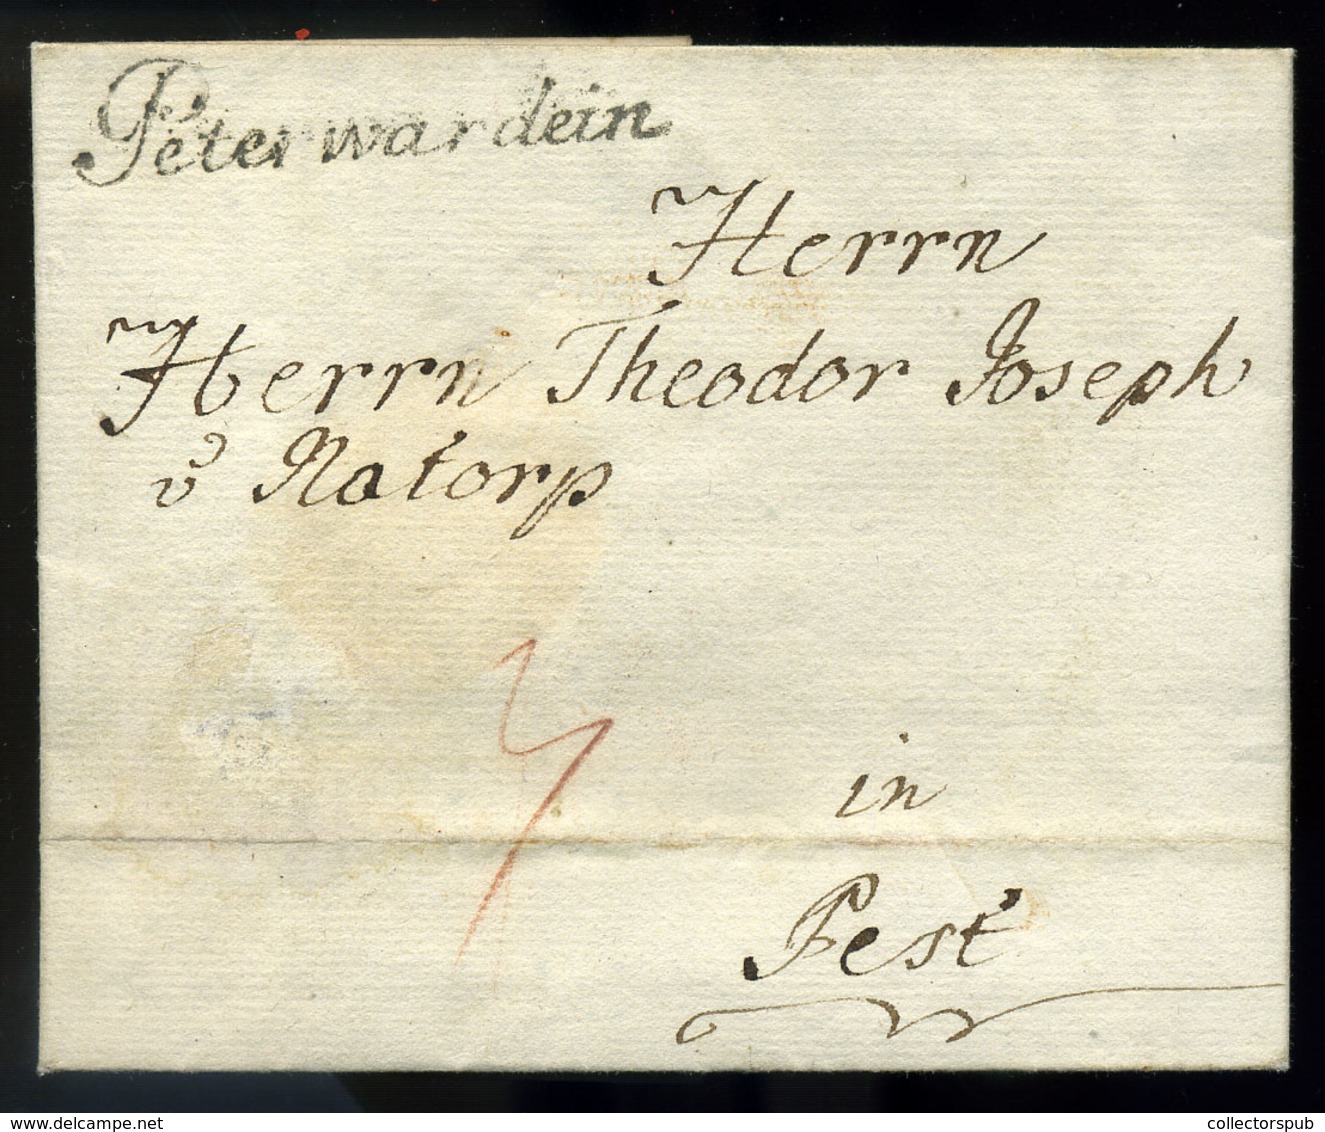 Peterwardein
Herrn
Herrn Theodor Joseph
v Natorp
in
Pest
www.delcampe.net
collectorspub